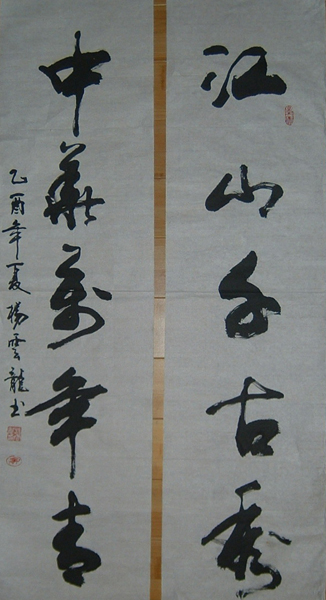 江山千古秀
中華萬年青
乙酉年夏楊雲龍书